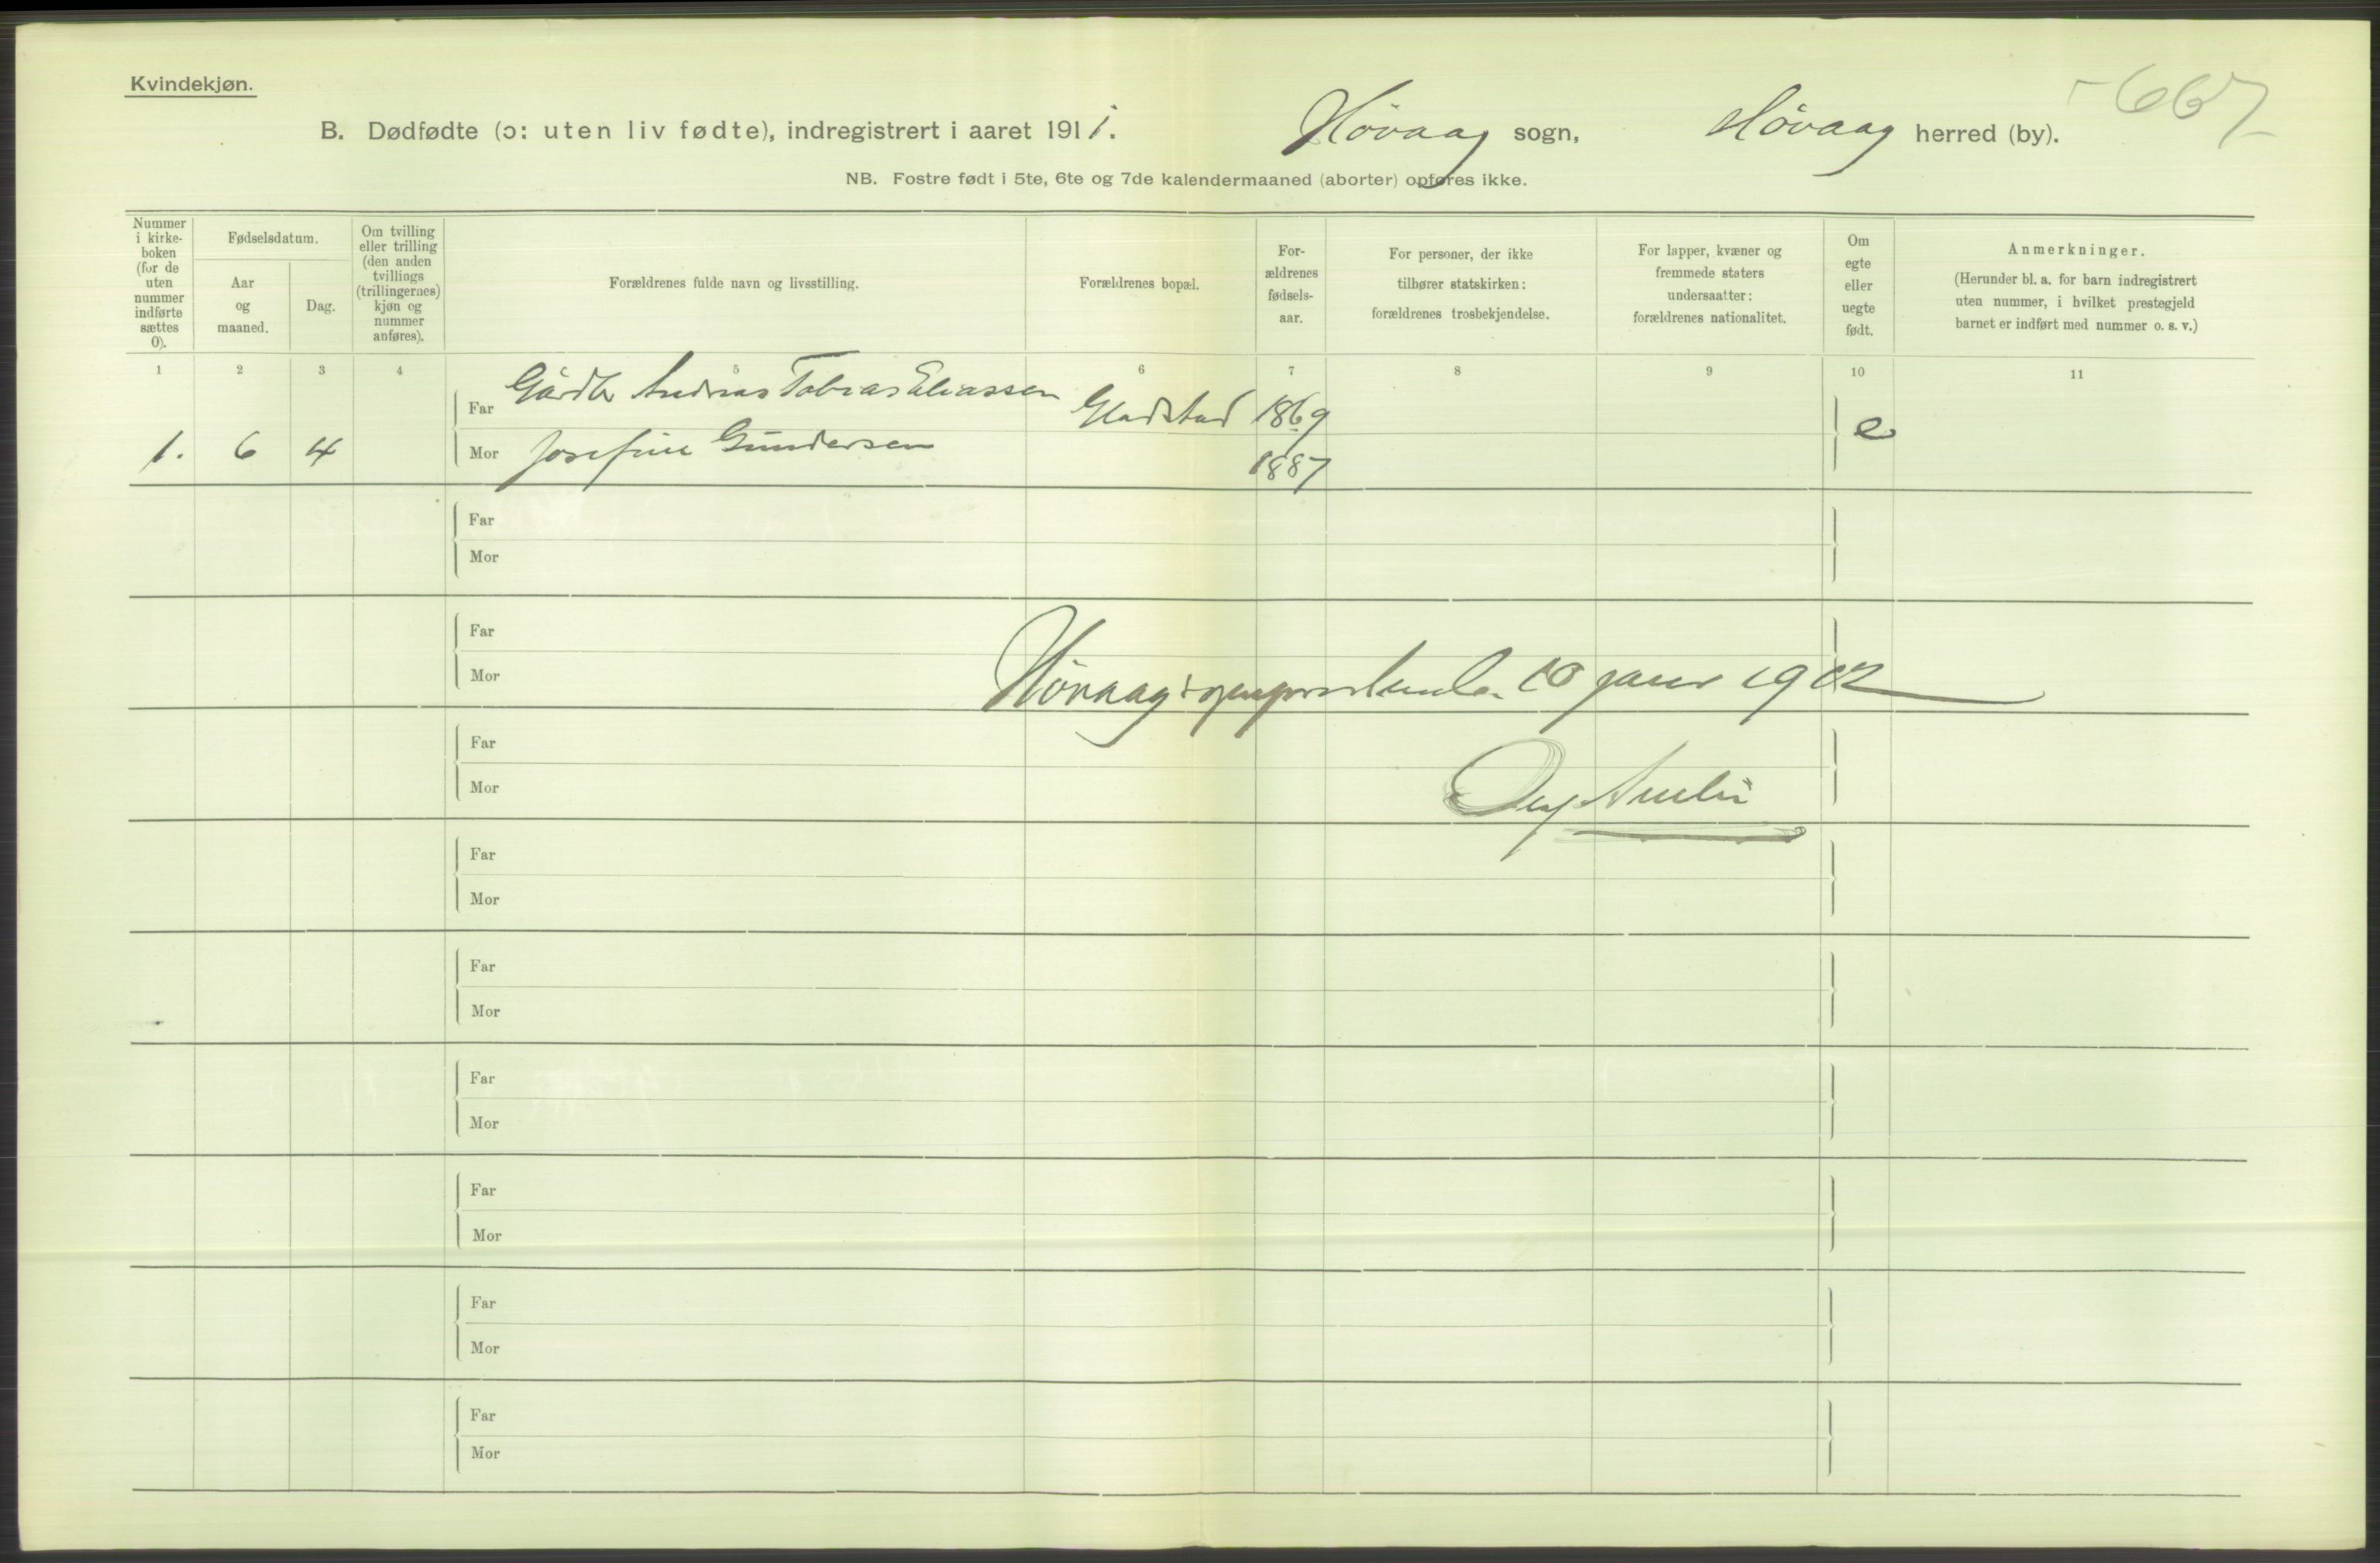 Kvindekjøn.
-667
B. Dødfødte (ɔ: uten liv fødte), indregistrert i aaret 1911. Høvaag sogn, Høvaag herred (by).
NB. Fostre født i 5te, 6te og 7de kalendermaaned (aborter) opføres ikke.
Nummer i kirke-boken (for de uten nummer indførte sættes 0).
Fødselsdatum.
Aar og maaned.
Dag.
Om tvilling eller trilling (den anden tvillings (trillingernes) kjøn og nummer anføres).
Forældrenes fulde navn og livsstilling.
Forældrenes bopæl.
For-ældrenes fødsels-aar.
For personer, der ikke tilhører statskirken: forældrenes trosbekjendelse.
For lapper, kvæner og fremmede staters undersaatter: forældrenes nationalitet.
Om egte eller uegte født.
Anmerkninger.
(Herunder bl. a. for barn indregistrert uten nummer, i hvilket prestegjeld barnet er indført med nummer o. s. v.)
1 2 3 4 5 6 7 8 9 10 11
Far Gårdbr Andreas Tobias Eliassen Gladstad 1869
1. 6 4 Mor Josefine Gundersen 1887 e
Far
Mor
Far
Mor Høvaag sogneprestembede 10 januar 1912
Far
Mor Oluf
Far
Mor
Far
Mor
Far
Mor
Far
Mor
Far
Mor
Far
Mor